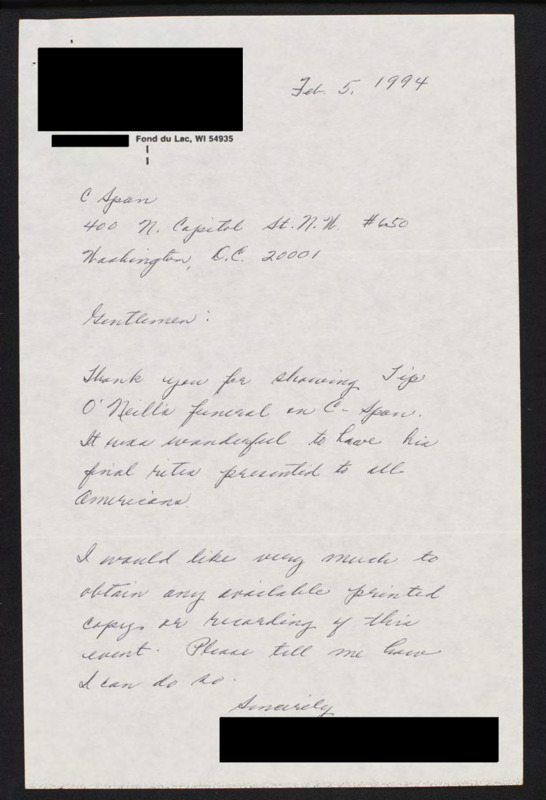 Feb. 5, 1994
Fond du Lac, WI 54935
C Span
400 N. Capitol St. N.W. #650
Washington, D.C. 20001
Gentlemen:
Thank you for showing Tip
O'Neill's funeral on C-Span.
It was wonderful to have his
final rites presented to all
Americans.
I would like very much to
obtain any available printed
copy, or recording of this
event. Please tell me how
I can do so.
Sincerely